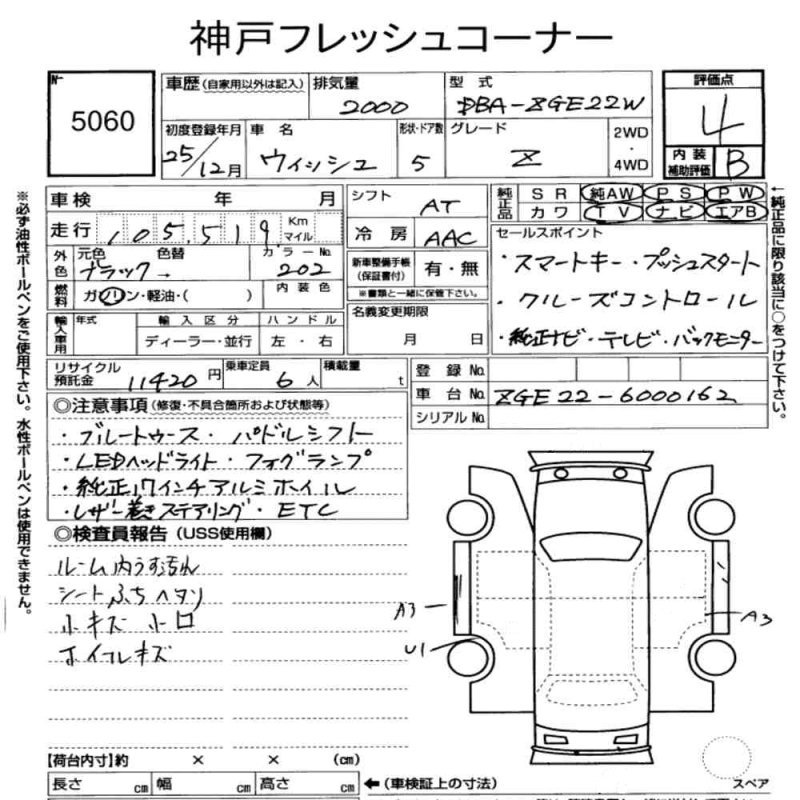 神戸フレッシュコーナー
No. 5060
車歴 (自家用以外は記入) 排気量 2000 型式 DBA-ZGE22W 評価点 4
初度登録年月 25/12月 車名 ウィッシュ 形状・ドア数 5 グレード Z 2WD・4WD 内装補助評価 B
車検 年 月 シフト AT 純正品 SR 純AW PS PW
カワ TV ナビ エアB
走行 105,519 Km マイル 冷房 AAC
セールスポイント
外色 元色 ブラック 色替 → カラーNo. 202
新車整備手帳(保証書付) 有・無
※書類と一緒に保管下さい。
・スマートキー・プッシュスタート
燃料 ガソリン・軽油・( ) 内装色
・クルーズコントロール
名義変更期限 月 日
・純正ナビ・テレビ・バックモニター
輸入車用 年式 輸入区分 ハンドル
ディーラー・並行 左・右
リサイクル預託金 11420円 乗車定員 6人 積載量 t
登録No.
車台No. ZGE22-6000162
シリアルNo.
◎注意事項 (修復・不具合箇所および状態等)
・ブルートゥース・パドルシフト
・LEDヘッドライト・フォグランプ
・純正17インチアルミホイル
・レザー巻きステアリング・ETC
◎検査員報告 (USS使用欄)
ルーム内うす汚れ
シートふちヘタリ
小キズ 小凹
ホイールキズ
A3
U1
A3
スペア
【荷台内寸】約 × × (cm)
長さ cm 幅 cm 高さ cm ←(車検証上の寸法)
※必ず油性ボールペンをご使用下さい。水性ボールペンは使用できません。
←純正品に限り該当に○をつけて下さい。